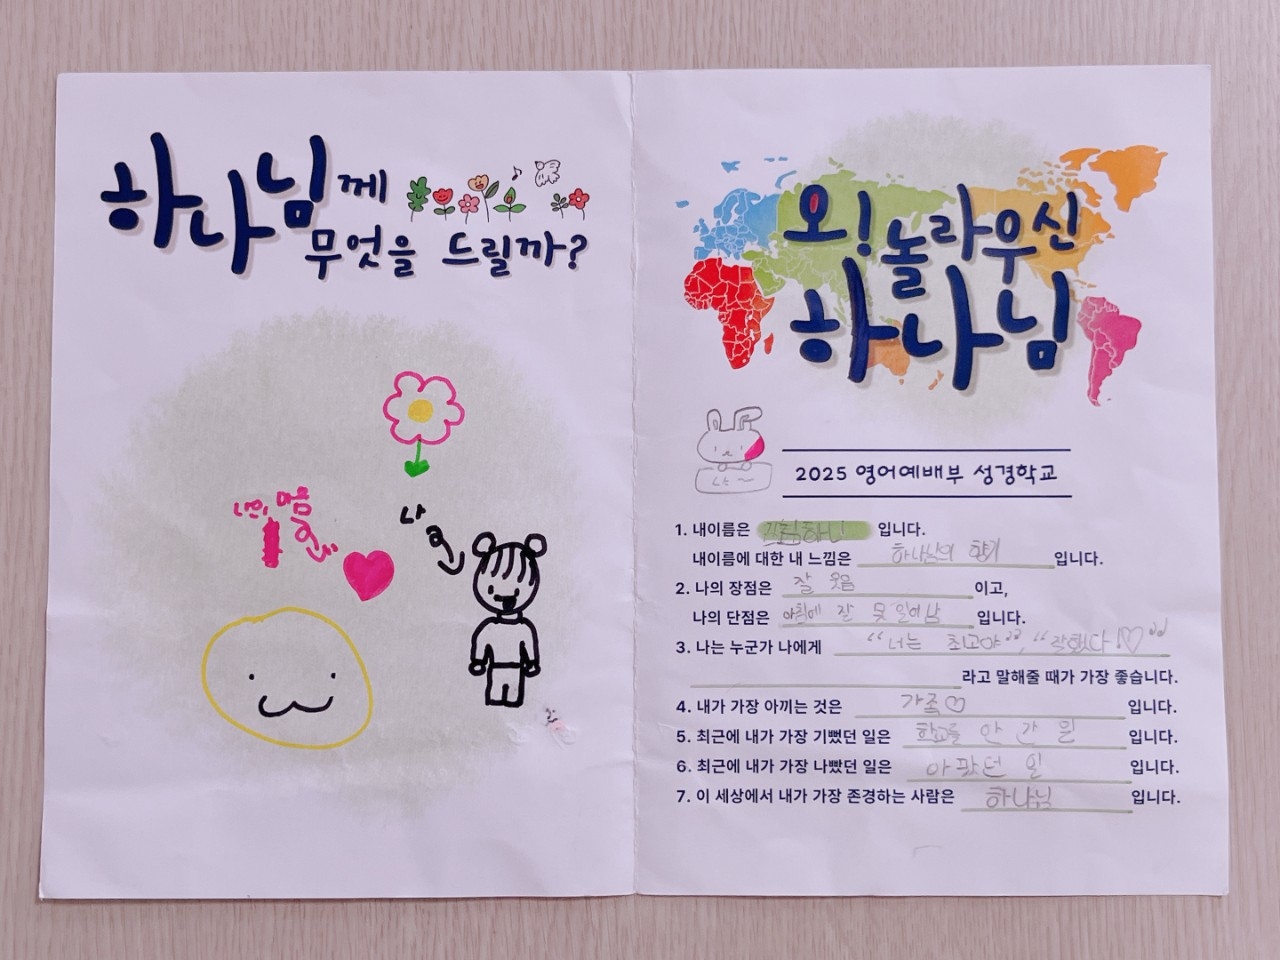 하나님께
무엇을 드릴까?
나의 마음
나
오! 놀라우신
하나님
2025 영어예배부 성경학교
1. 내이름은 입니다.
내이름에 대한 내 느낌은 하나님의 향기 입니다.
2. 나의 장점은 잘 웃음 이고,
나의 단점은 아침에 잘 못 일어남 입니다.
3. 나는 누군가 나에게 "너는 최고야", "잘했다♡"
라고 말해줄 때가 가장 좋습니다.
4. 내가 가장 아끼는 것은 가족♡ 입니다.
5. 최근에 내가 가장 기뻤던 일은 학교를 안 간 일 입니다.
6. 최근에 내가 가장 나빴던 일은 아팠던 일 입니다.
7. 이 세상에서 내가 가장 존경하는 사람은 하나님 입니다.